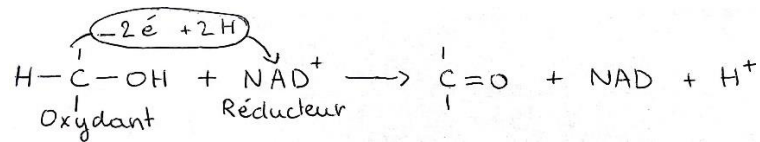 -2é +2H
H-C-OH + NAD⁺ ⟶ C=O + NAD + H⁺
Oxydant Réducteur